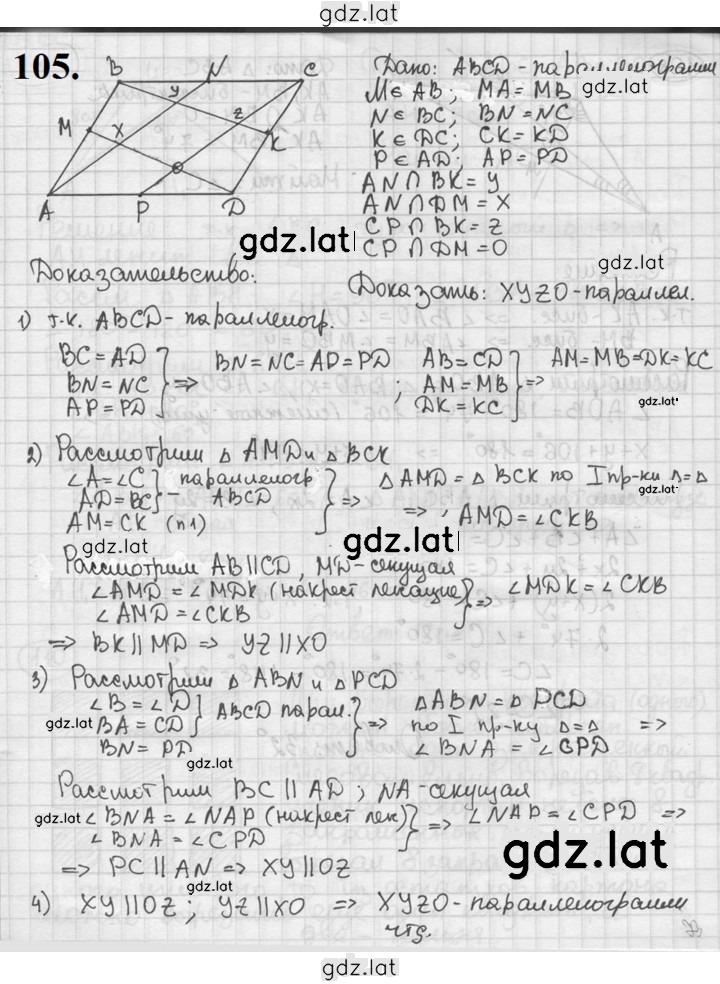 gdz.lat
105.
B N C
Y
M X Z K
O
A P D
Дано: ABCD - параллелограмм
M∈AB; MA=MB
gdz.lat
N∈BC; BN=NC
K∈DC; CK=KD
P∈AD; AP=PD
AN∩BK=Y
AN∩DM=X
CP∩BK=Z
CP∩DM=O
gdz.lat
gdz.lat
Доказательство:
Доказать: XYZO-параллел.
1) т.к. ABCD-параллелогр.
BC=AD
BN=NC
AP=PD
} => BN=NC=AP=PD
; AB=CD
AM=MB
DK=KC
} => AM=MB=DK=KC
gdz.lat
2) Рассмотрим △AMD и △BCK
∠A=∠C
AD=BC
} параллелогр
ABCD
AM=CK (п1)
} => △AMD=△BCK по I пр-ку △=△
gdz.lat
=> ∠AMD=∠CKB
gdz.lat
gdz.lat
Рассмотрим AB||CD, MD-секущая
∠AMD=∠MDK (накрест лежащие)
∠AMD=∠CKB
} => ∠MDK=∠CKB
=> BK||MD => YZ||XO
3) Рассмотрим △ABN и △PCD
∠B=∠D
gdz.lat
BA=CD
} ABCD парал.
BN=PD
} => △ABN=△PCD
по I пр-ку △=△ =>
∠BNA=∠CPD
Рассмотрим BC||AD; NA-секущая
gdz.lat
∠BNA=∠NAP (накрест леж)
∠BNA=∠CPD
} => ∠NAP=∠CPD =>
=> PC||AN => XY||OZ
gdz.lat
gdz.lat
4) XY||OZ; YZ||XO => XYZO-параллелограмм
чтд.
gdz.lat